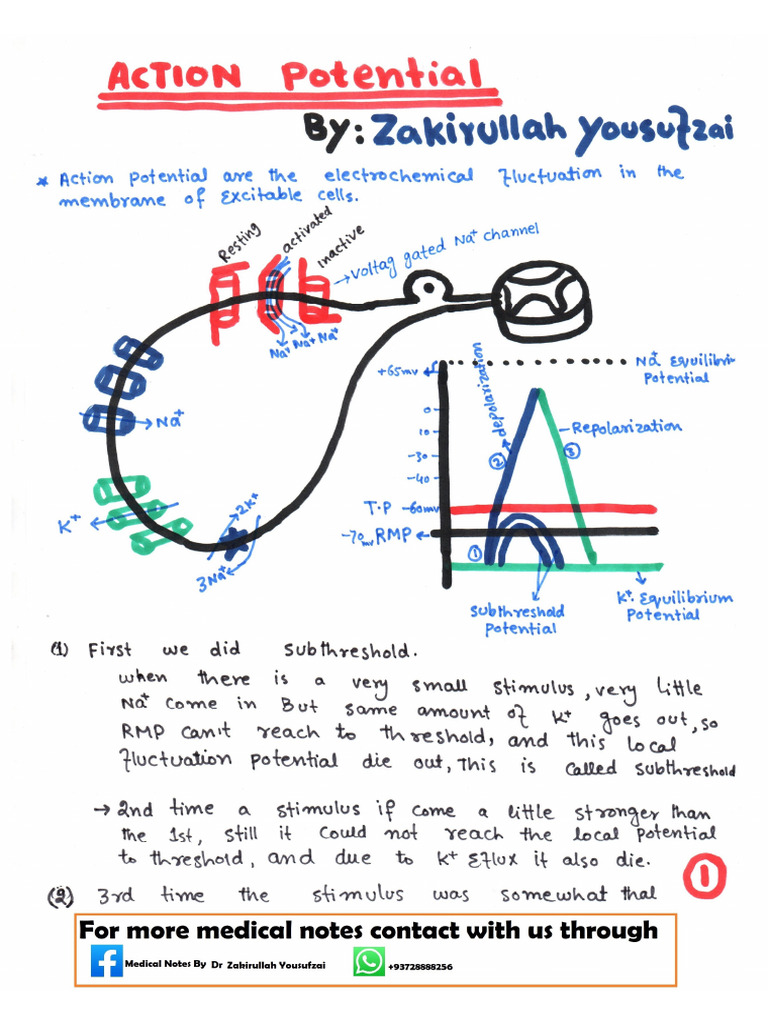 ACTION Potential
By: Zakirullah Yousufzai
* Action potential are the electrochemical fluctuation in the
membrane of Excitable cells.
Resting
activated
inactive
→ Voltag gated Na+ channel
Na+ Na+ Na+
→ Na+
K+
2K+
3Na+
+65mv
0
10
-30
-40
T.P -60mv
-70mv RMP
Na+ Equilibriu
Potential
depolarization
Repolarization
① ② ③
Subthreshold
potential
K+ Equilibrium
Potential
(1) First we did subthreshold.
when there is a very small stimulus, very little
Na+ come in But same amount of K+ goes out, so
RMP can't reach to threshold, and this local
fluctuation potential die out, This is called subthreshold
→ 2nd time a stimulus if come a little stronger than
the 1st, still it could not reach the local potential
to threshold, and due to K+ Eflux it also die.
①
(2) 3rd time the stimulus was somewhat that
For more medical notes contact with us through
Medical Notes By Dr Zakirullah Yousufzai
+93728888256